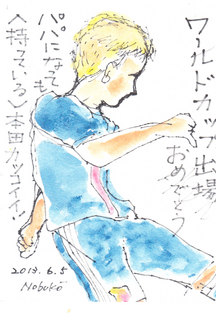 ワールドカップ出場
おめでとう
パパになっても
〈持っている〉本田カッコイイ!!
2013.6.5
Nobuko